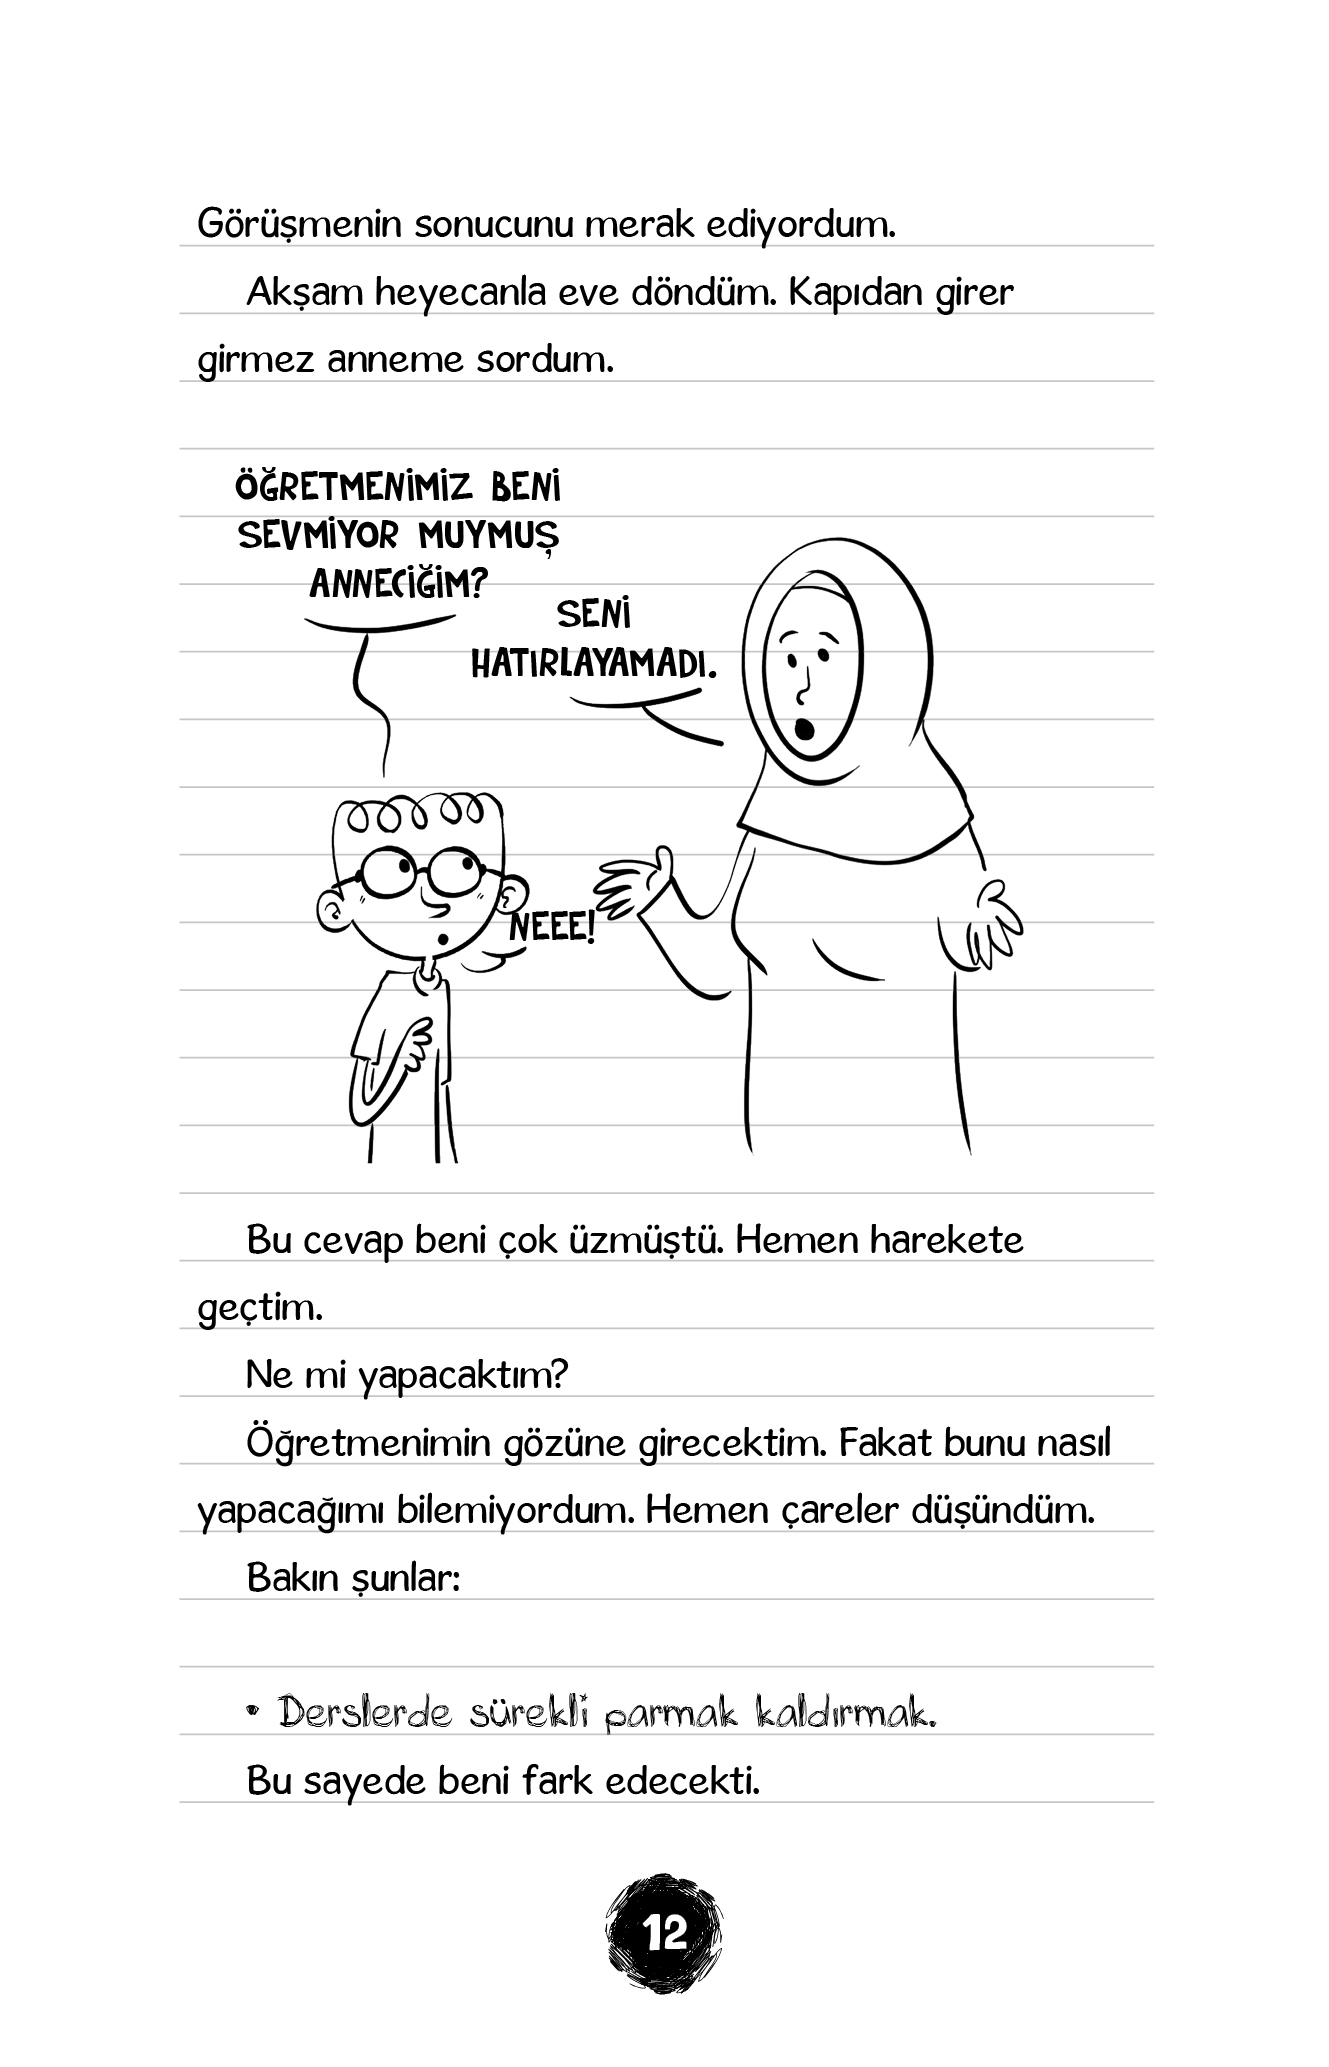 Görüşmenin sonucunu merak ediyordum.
Akşam heyecanla eve döndüm. Kapıdan girer
girmez anneme sordum.
ÖĞRETMENİMİZ BENİ
SEVMİYOR MUYMUŞ
ANNECİĞİM?
SENİ
HATIRLAYAMADI.
NEEE!
Bu cevap beni çok üzmüştü. Hemen harekete
geçtim.
Ne mi yapacaktım?
Öğretmenimin gözüne girecektim. Fakat bunu nasıl
yapacağımı bilemiyordum. Hemen çareler düşündüm.
Bakın şunlar:
• Derslerde sürekli parmak kaldırmak.
Bu sayede beni fark edecekti.
12